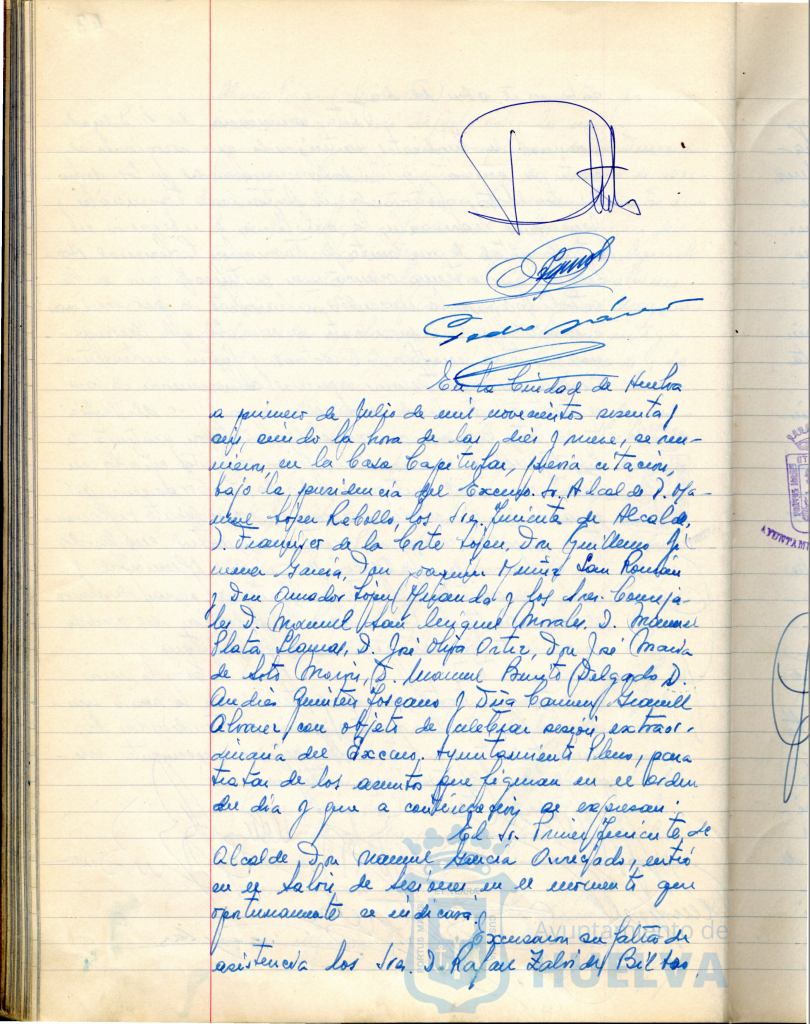 Pedro Suárez
En la Ciudad de Huelva
a primero de Julio de mil novecientos sesenta y
seis, siendo la hora de las diez y nueve, se reu-
nieron, en la Casa Capitular, previa citación,
bajo la presidencia del Excmo. Sr. Alcalde D. Ma-
nuel López Rebollo, los Sres. Teniente de Alcalde,
D. Francisco de la Corte López, Don Guillermo Ji
menez García, Don Joaquin Muñiz San Román
y Don Amador López Miranda y los Sres. Conceja-
les D. Manuel San Miguel Morales, D. Manuel
Plata Llamas, D. José Oliva Ortiz, Don José María
de Soto Morón, D. Manuel Benito Delgado, D.
Andrés Quintero Toscano y Dña Carmen
Alvarez con objeto de celebrar sesión extraor-
dinaria del Excmo. Ayuntamiento Pleno, para
tratar de los asuntos que figuran en el orden
del día y que a continuación se expresan.
El Sr. Primer Teniente de
Alcalde, Don Manuel García, entró
en el Salón de Sesiones en el momento que
oportunamente se indicará.
Excusaron su falta de
asistencia los Sres. D. Rafael Zalvide Bilbao,
Ayuntamiento de
HUELVA